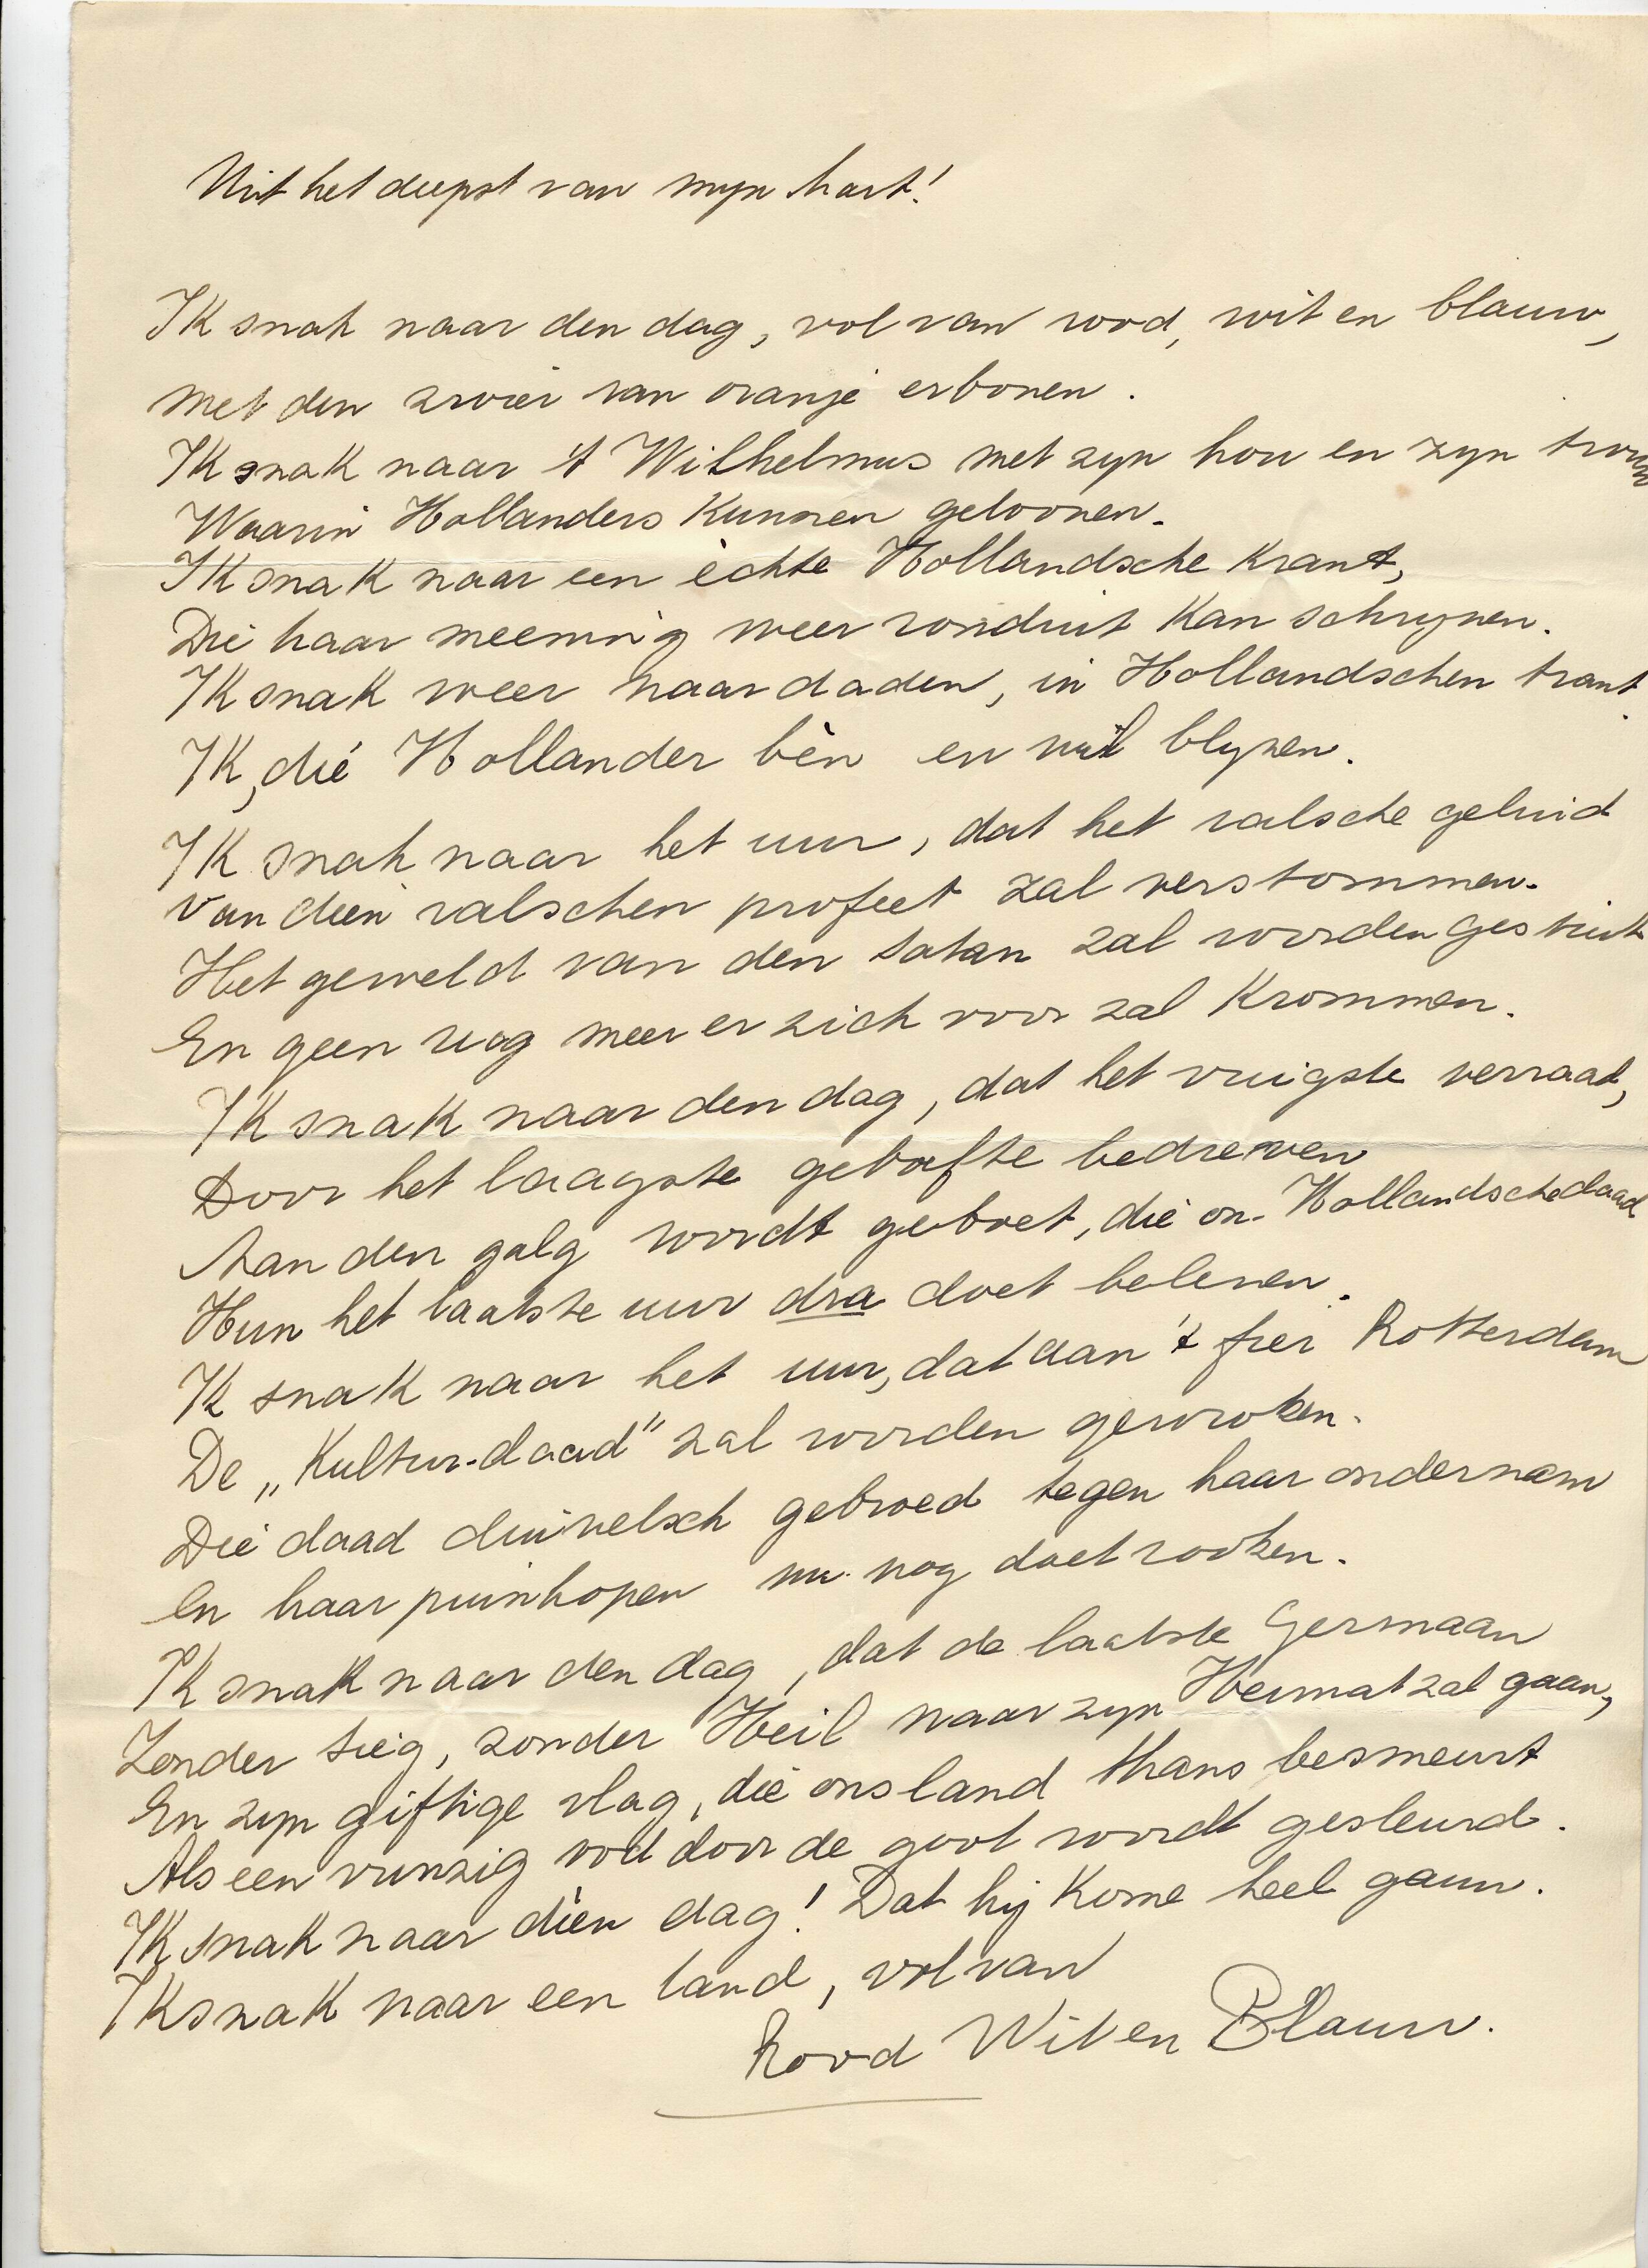 Uit het diepst van mijn hart!
Ik snak naar den dag, vol van rood, wit en blauw,
Met den zwier van oranje erboven.
Ik snak naar 't Wilhelmus met zijn hou en zijn trouw
Waarin Hollanders kunnen gelooven.
Ik snak naar een èchte Hollandsche krant,
Die haar meening weer ronduit kan schrijven.
Ik snak weer naar daden, in Hollandschen trant
Ik, die Hollander bèn en wil blijven.
Ik snak naar het uur, dat het valsche geluid
Van dien valschen profeet zal verstommen.
Het geweld van den satan zal worden gestuit
En geen rug meer er zich voor zal krommen.
Ik snak naar den dag, dat het vuigste verraad,
Door het laagste geboefte bedreven
Aan den galg wordt geboet, die on-Hollandsche daad
Hun het laatste uur dra doet beleven.
Ik snak naar het uur, dat aan 't fier Rotterdam
De „Kultur-daad" zal worden gewroken.
Die daad duivelsch gebroed tegen haar ondernam
En haar puinhopen nu nog doet rooken.
Ik snak naar den dag, dat de laatste Germaan
Zonder Sieg, zonder Heil naar zijn Heimat zal gaan,
En zijn giftige vlag, die ons land thans besmeurt
Als een vunzig vod door de goot wordt gesleurd.
Ik snak naar dièn dag! Dat hij kome heel gauw.
Ik snak naar een land, vol van
Rood Wit en Blauw.